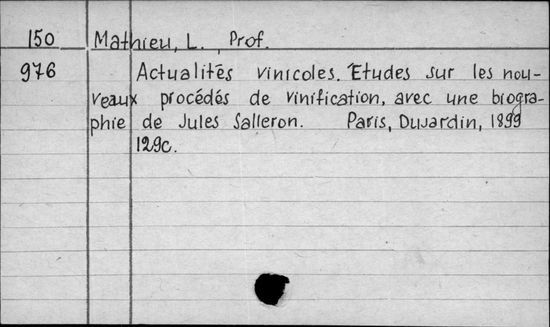 150 Mathieu, L., Prof.
976 Actualités vinicoles. Etudes sur les nou-
veaux procédés de vinification, avec une biogra-
phie de Jules Salleron. Paris, Dujardin, 1899
129c.